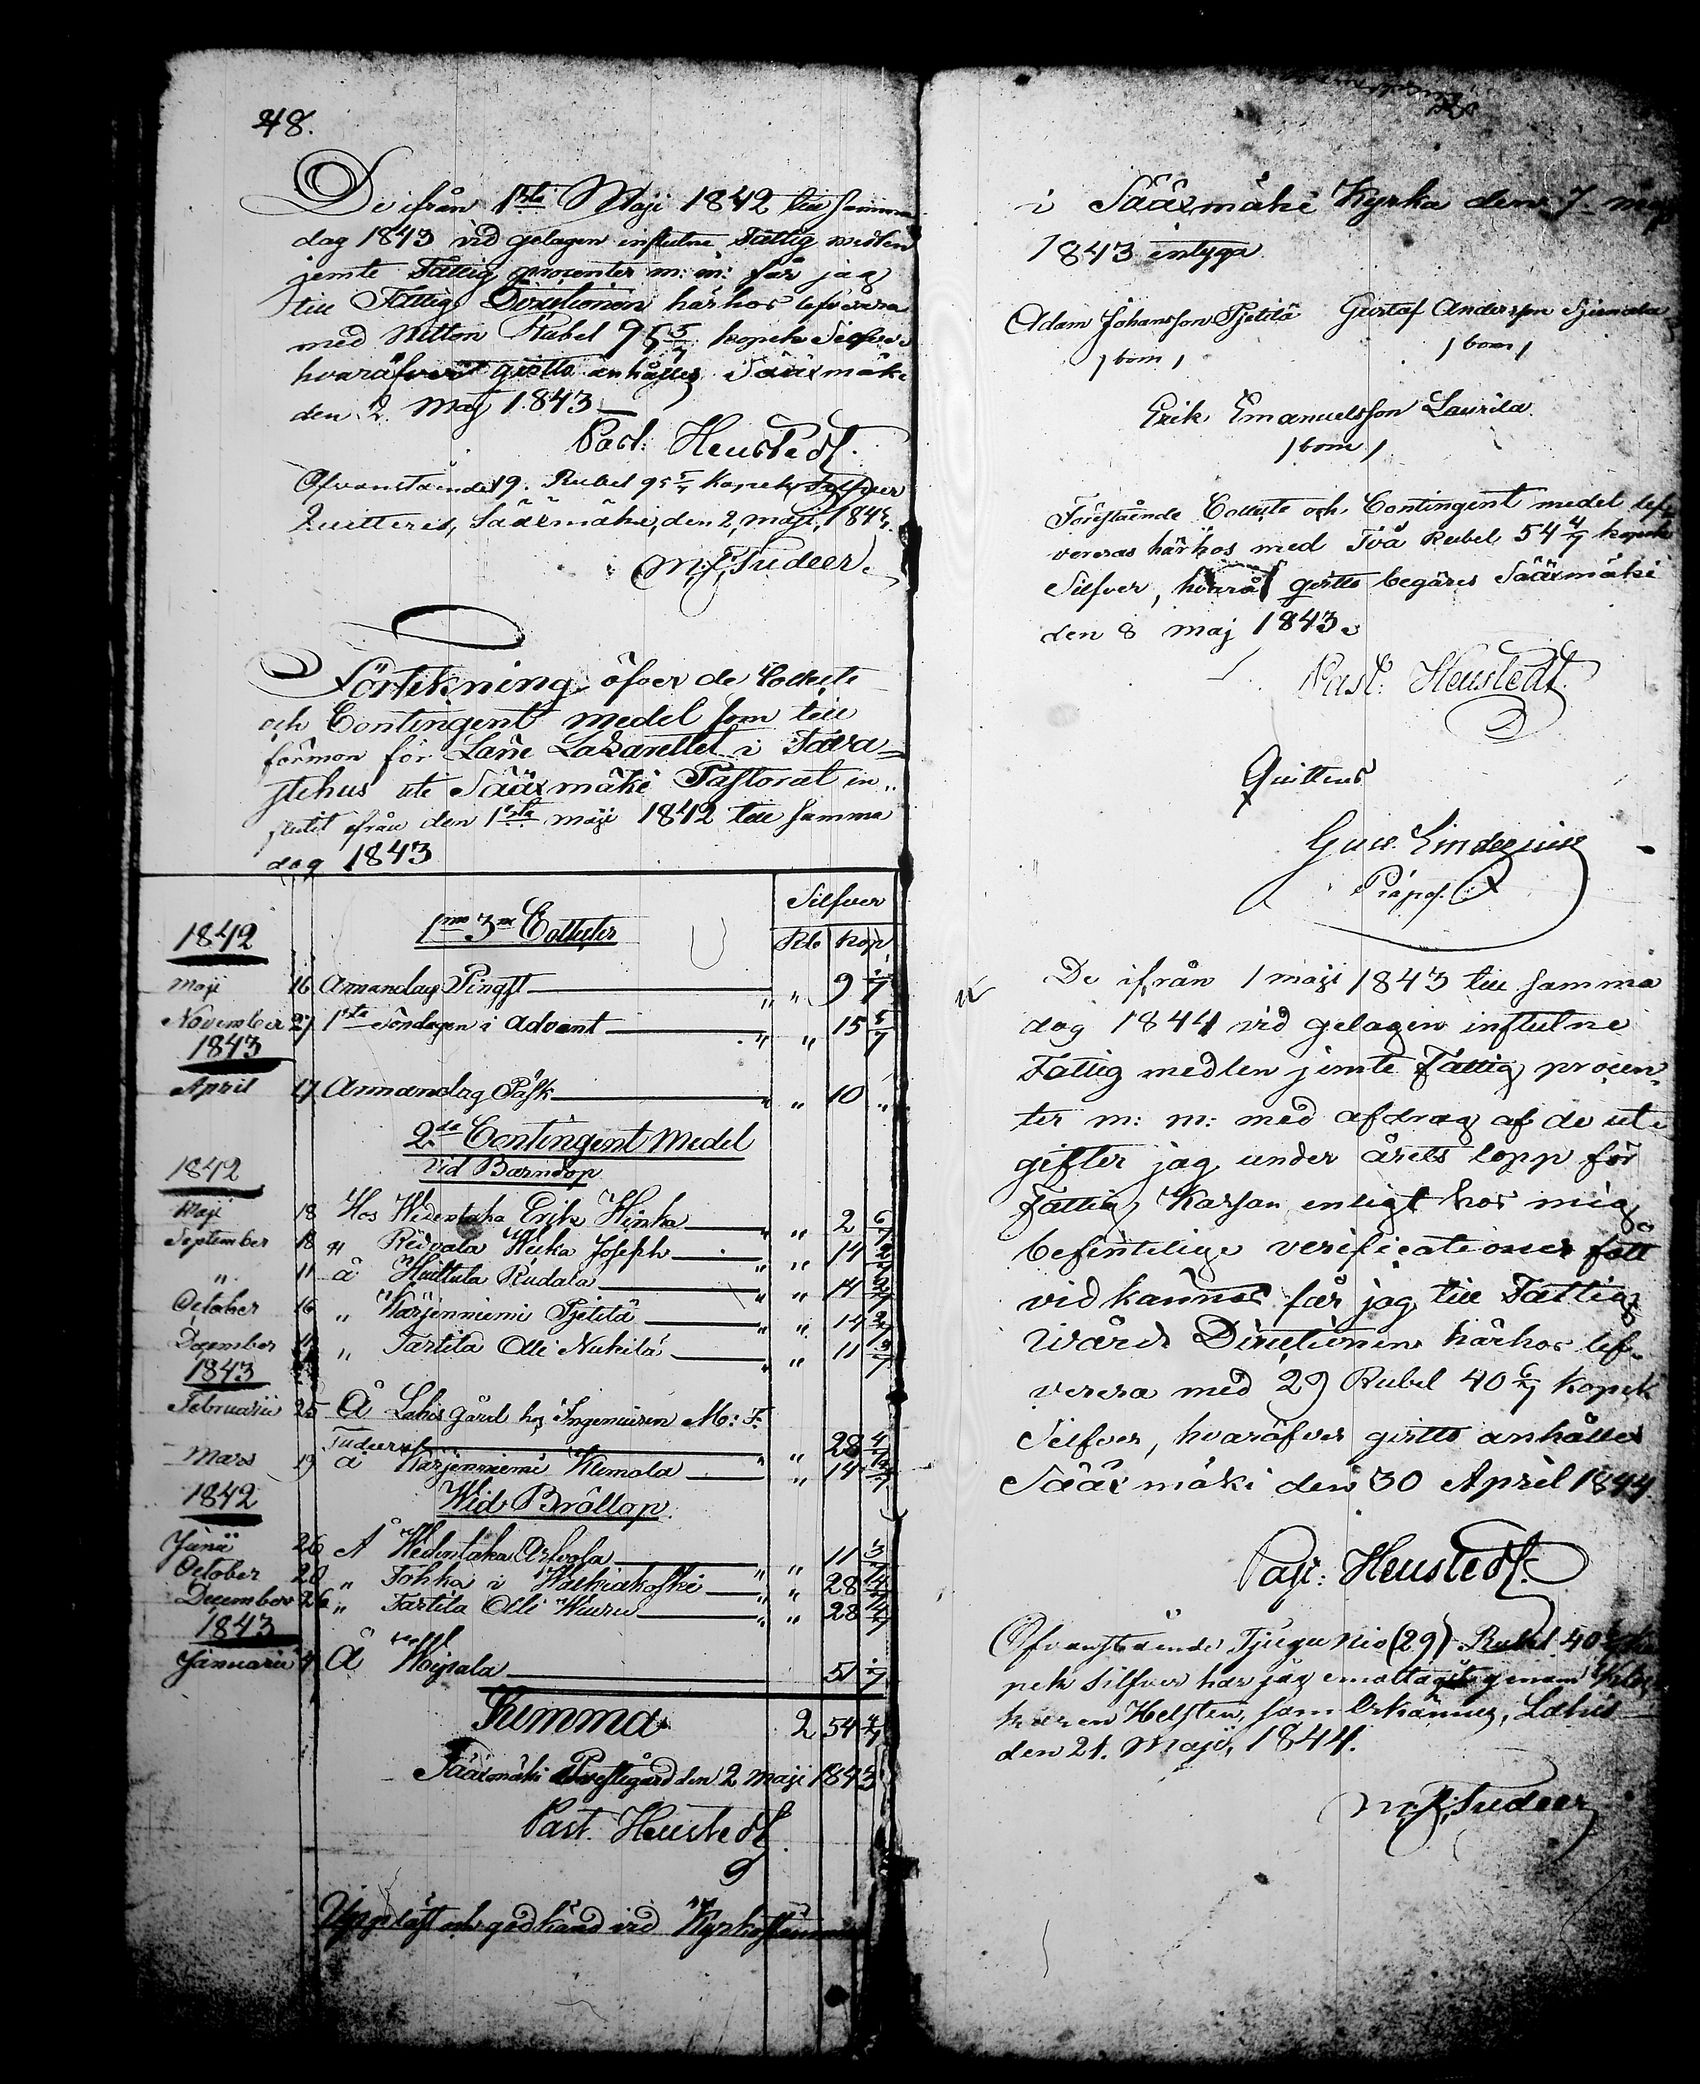 48.
De ifrån 1sta Maji 1842 till samma
dag 1843 vid gelagen influtne Fattig medlen
jemte Fattig procenter m: m: får jag
till Fattig Directionen härhos lefverera
med Nitton Rubel 95 5/7 kopek Silfver
hvaröfver qvitto anhålles Sääxmäki
den 2 Maj 1843
Past: Heustedt.
Ofvanstående 19. Rubel 95 5/7 Kopek Silfver
Quitteres, Sääxmäki, den 2, maji, 1843.
Tudeer.
Förtekning öfver de Collecte
och Contingent medel som till
förmon för Läne Lazarettet i Tava-
stehus uti Sääxmäki Pastorat in-
flutit ifrån den 1sta maji 1842 till samma
dag 1843
Silfver
1842 1mo 3ne Collecter Rub kop
Maji 16 Annandag Pingst " " 9 1/7
November 27 1sta Söndagen i Advent " " 15 5/7
1843
April 17 Annandag Påsk " " 10 "
2do Contingent Medel
vid Barndop
1842
Maji 18 Hos Widentaka Erik Hinka " " 2 6/7
September 18 Ridvala Weika Joseph " " 14 2/7
" 11 å Huittula Rudala " " 14 2/7
October 16 " Kärjenniemi Pjetilä " " 14 2/7
December " Tartila Olli Nukilä " " 11 3/7
1843
Februarii 25 Å Lahis gård hos Ingenieuren M: F:
Tudeer " 28 4/7
Mars 19 å Kärjenniemi Klemola " 14 2/7
1842 Wid Bröllop.
Junii 26 Å Widentaka " " 11 3/7
October 20 " Tohka i Walkiakoski " " 28 4/7
December 26 " Tartila Olli Wuru " " 28 4/7
1843
Januarii 4 Å Woipala 51 /7
Summa 2 54 4/7
Sääxmäki Prestegård den 2 Maji 1843
Past. Heustedt
Uppläst och godkänd vid Kyrkostämma
i Sääxmäki Kyrka den 7 maj
1843 intyga
Adam Johansson Pjetilä Gustaf Andersson
/bom/ /bom/
Erik Emanuelsson Laurila.
/bom/
Föreståände Collecte och Contingent medel lef-
vereras härhos med Två Rubel 54 4/7 kopek
Silfver, hvarå qvitto begäres Sääxmäki
den 8 maj 1843.
Past: Heustedt.
Quitteras
De ifrån 1 maji 1843 till samma
dag 1844 vid gelagen influtne
Fattig medlen jemte Fattig procen-
ter m: m: med afdrag af de ut-
gifter jag under årets lopp för
Fattig Kassan enligt hos mig
befintelige verificationer fått
vidkännas får jag till Fattig
Wårds Directionen härhos lef-
verera med 29 Rubel 40 6/7 Kopek
Silfver, hvaröfver qvitto anhålles
Sääxmäki den 30 April 1844
Past: Heustedt.
Ofvanstående Tjugu nio (29) Rubel 40 6/7 ko-
pek silfver har jag emottagit genom
Helsten, som erkännes, Lahis
den 21. Maji, 1844.
Tudeer